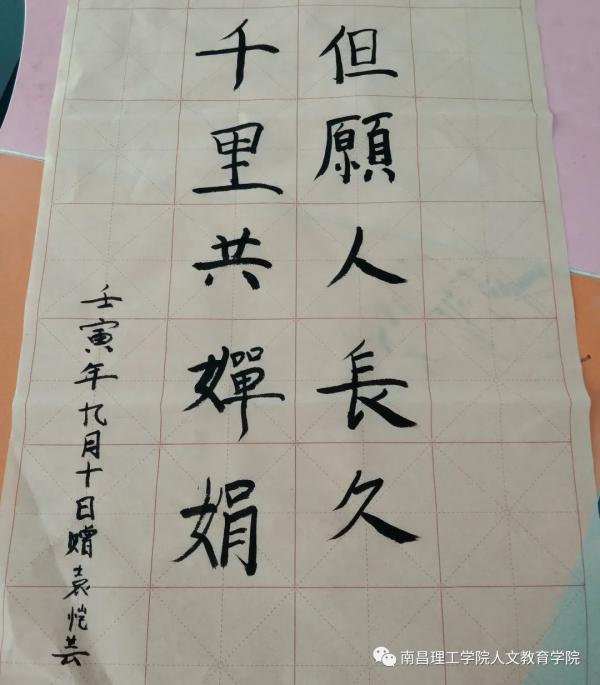 但願人長久
千里共嬋娟
壬寅年九月十日赠袁恺芸
南昌理工学院人文教育学院